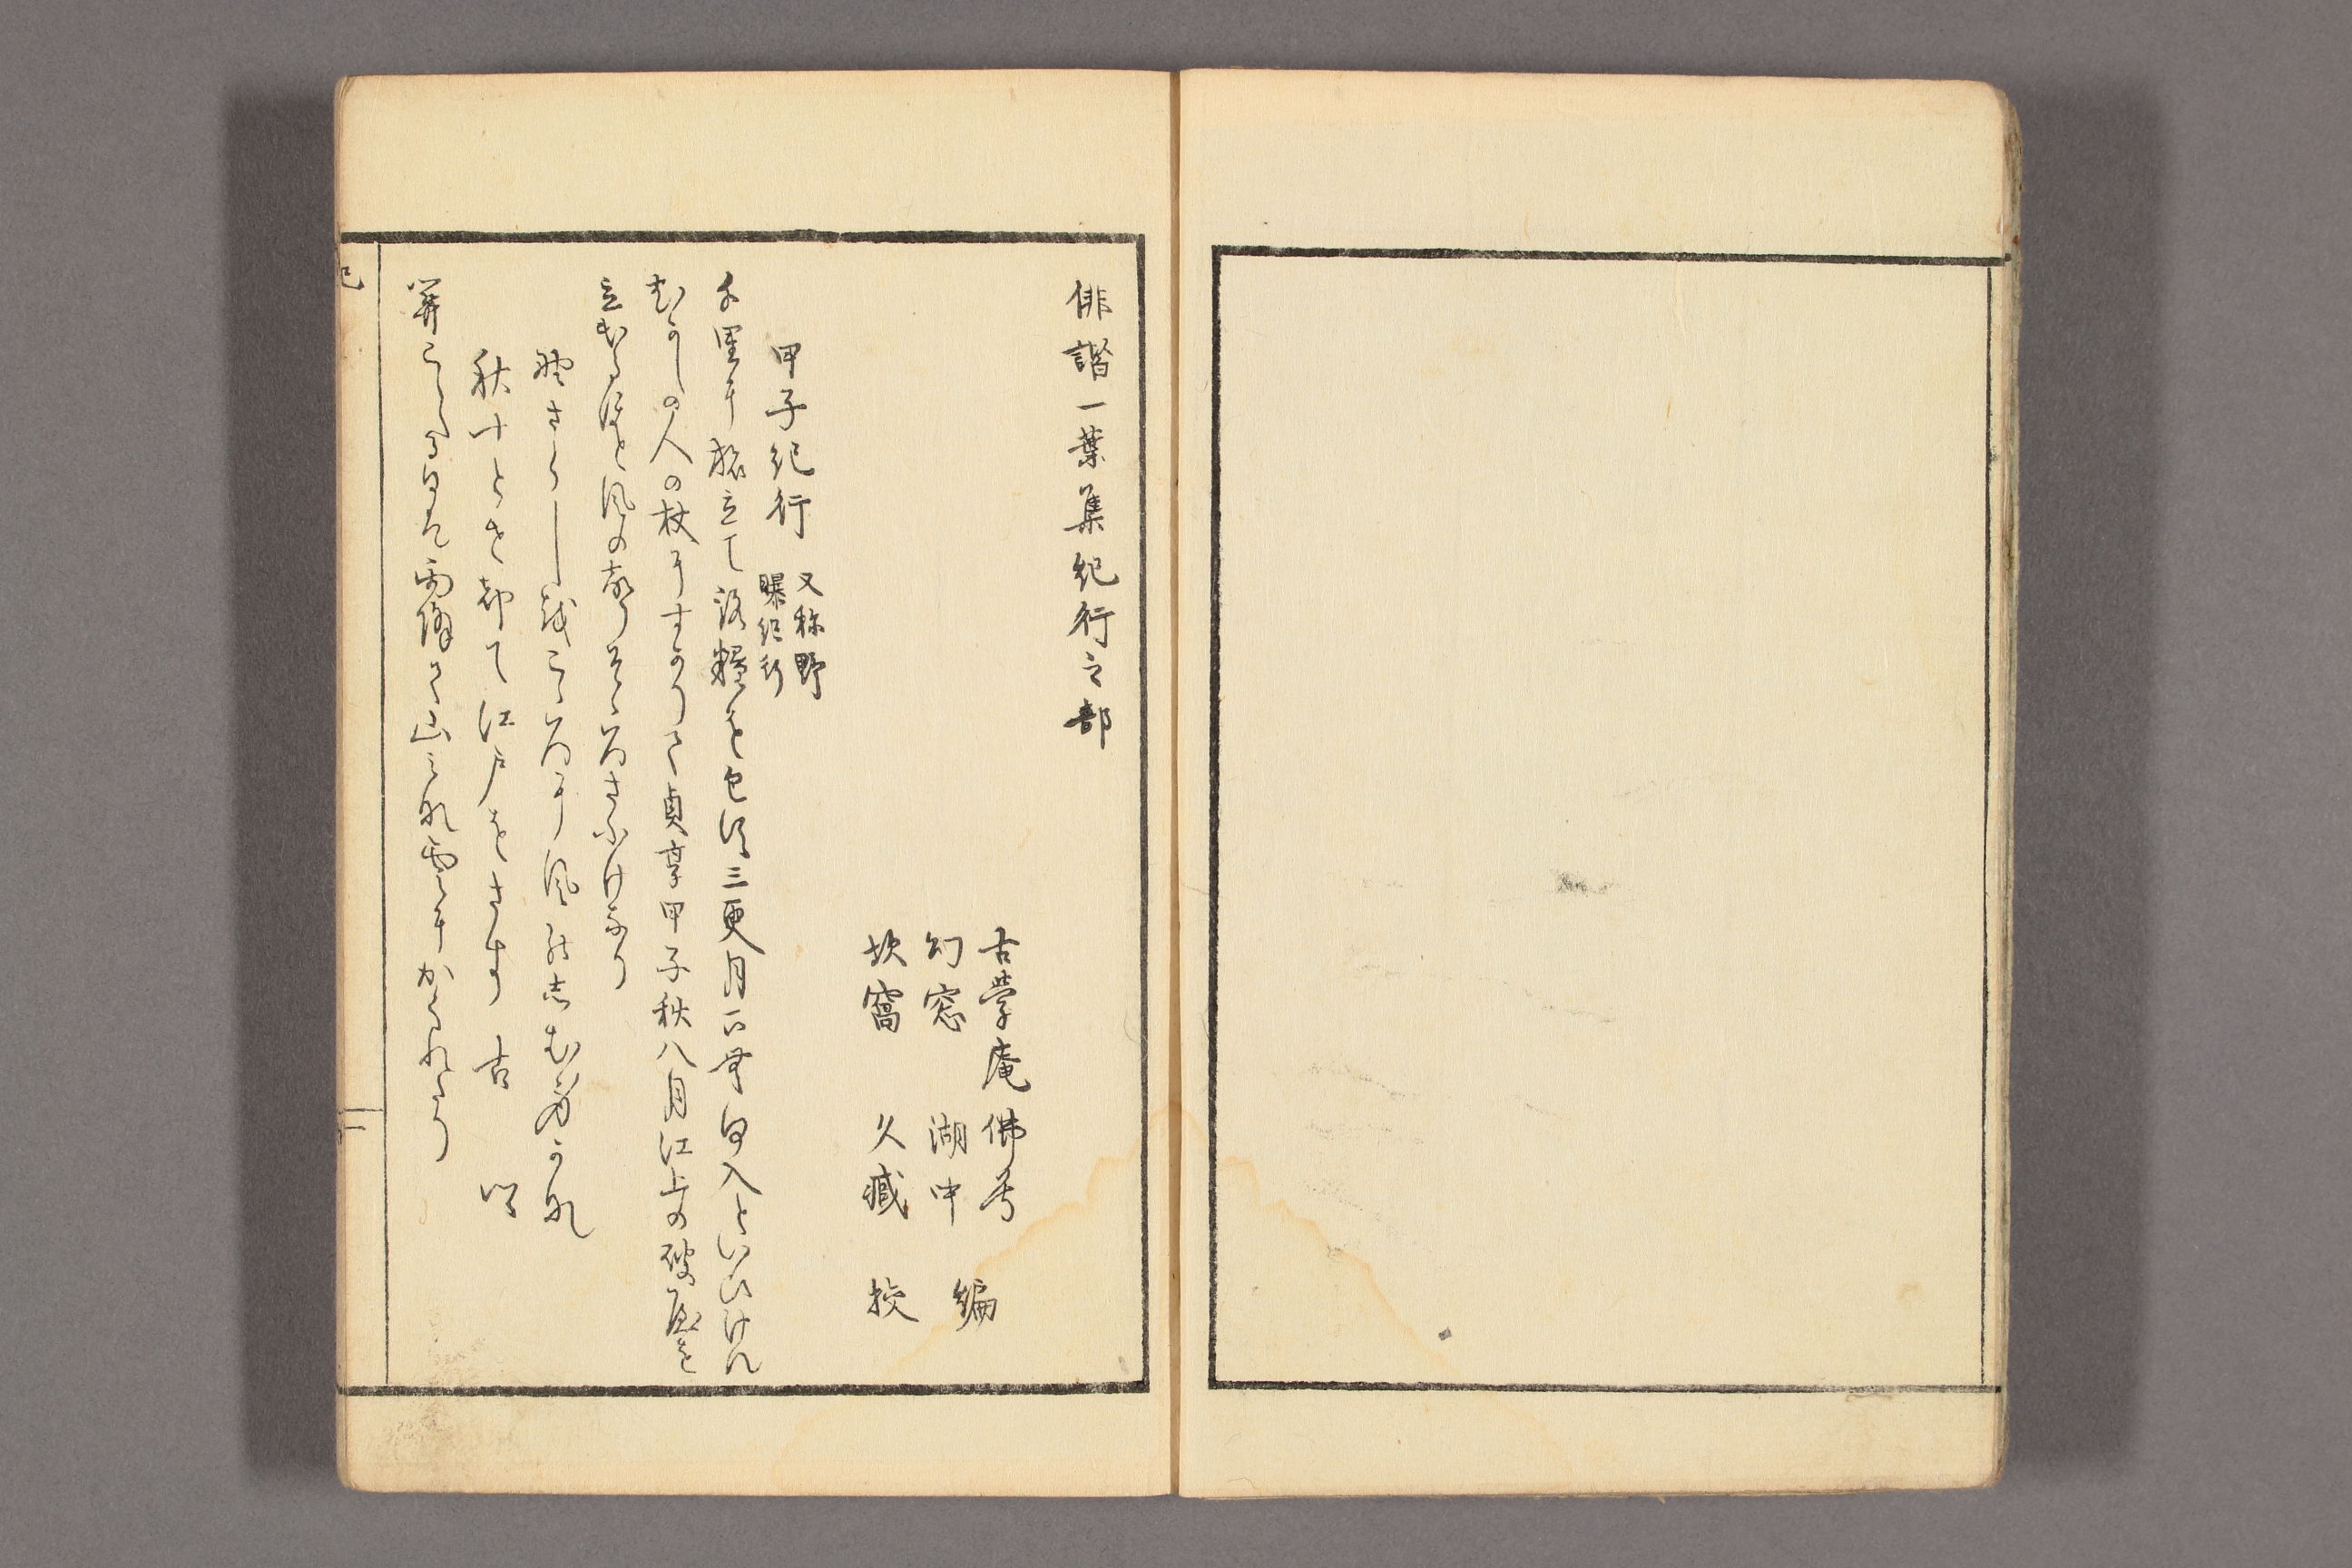 俳諧一葉集紀行之部
古学庵佛兮
幻窓湖中 編
坎窩久臧 挍
甲子紀行 又称野
曝紀行
千里に旅立て路糧を包す三更月下無何入といひけん
むかしの人の杖にすかりて貞享甲子秋八月江上の破屋を
立出るほと風の声そゝろさふけなり
野さらしを心に風のしむ身かな
秋十とせ却て江戸をさす古郷
関こゆる日は雨降て山みな雲にかくれたり